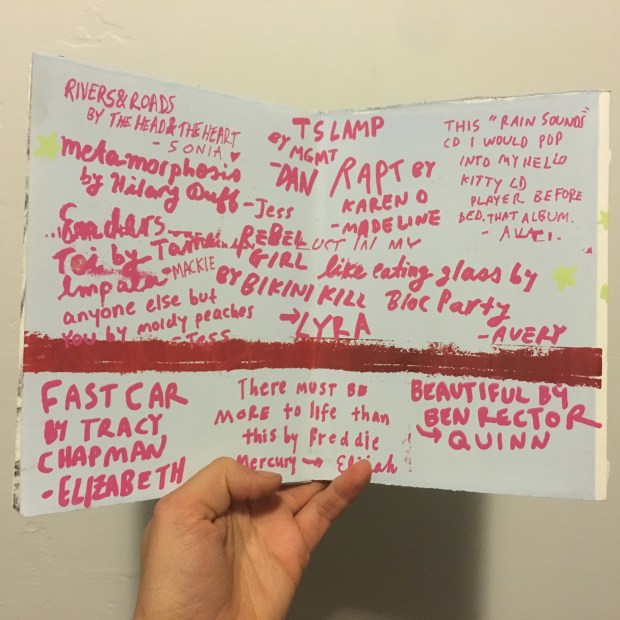 RIVERS & ROADS
BY THE HEAD & THE HEART
- SONIA
metamorphosis
by Hilary Duff - Jess
Enders
Toi by Tame
Impala - MACKIE
anyone else but
you by moldy peaches
- Tess
TSLAMP
BY MGMT
- DAN
RAPT BY
KAREN O
- MADELINE
REBEL
GIRL
BY BIKINI KILL
→ LYRA
THIS "RAIN SOUNDS"
CD I WOULD POP
INTO MY HELLO
KITTY CD
PLAYER BEFORE
BED. THAT ALBUM.
LUST IN MY
like eating glass by
Bloc Party
- AVERY
FAST CAR
BY TRACY
CHAPMAN
- ELIZABETH
There MUST BE
MORE to life than
this by Freddie
Mercury → Elijah
BEAUTIFUL BY
BEN RECTOR
→ QUINN